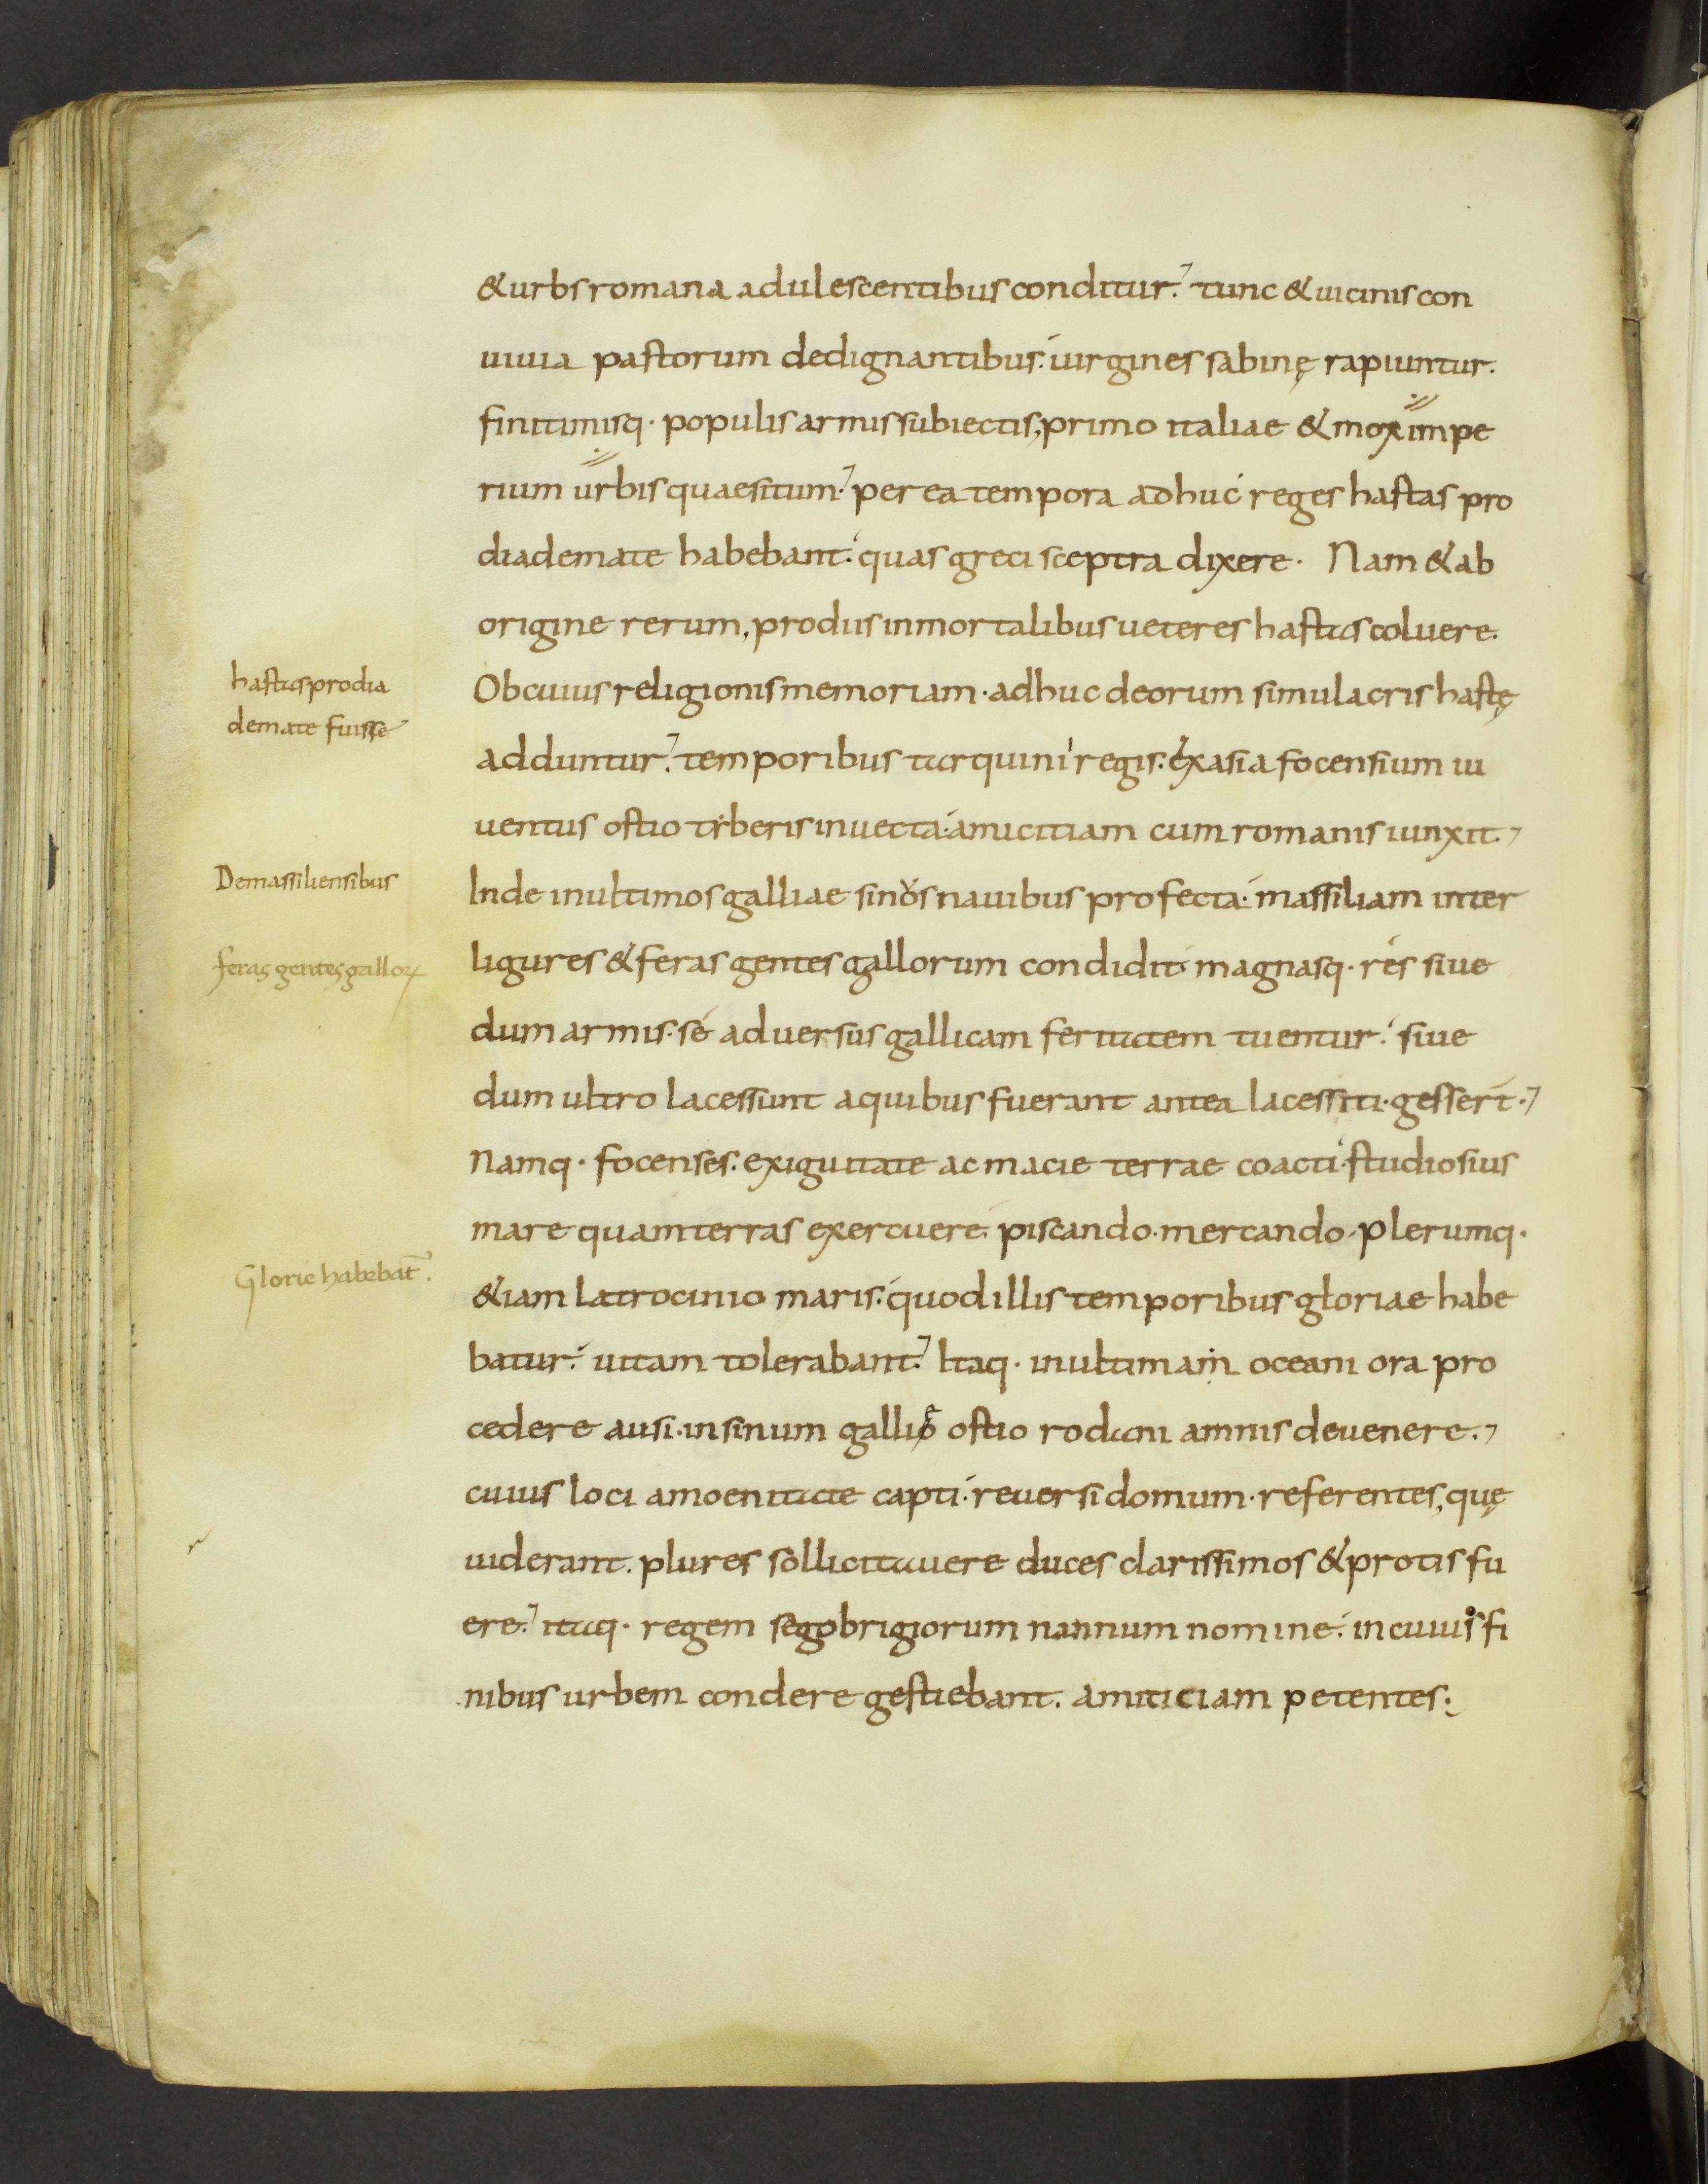 & urbs romana adulescentibus conditur. tunc & uicinis con
uiuia pastorum dedignantibus. uirgines sabinę rapiuntur.
finitimisq· populis armis subiectis, primo italiae & mox impe
rium urbis quaesitum. per ea tempora adhuc reges hastas pro
diademate habebant. quas greci sceptra dixere. Nam & ab
origine rerum, pro diis inmortalibus ueteres hastas coluere.
hastas pro dia
demate fuisse
Ob cuius religionis memoriam · adhuc deorum simulacris hastę
adduntur. temporibus tarquini regis. ex asia focensium iu
uentus ostio tyberis inuecta · amicitiam cum romanis iunxit.
De massiliensibus
Inde in ultimos galliae sinos nauibus profecta · massiliam inter
feras gentes galloꝝ
ligures & feras gentes gallorum condidit · magnasq· res siue
dum armis · se aduersus gallicam feritatem tuentur. siue
dum ultro lacessunt a quibus fuerant antea lacessiti · gesserī.
Namq· focenses. exiguitate ac macie terrae coacti · studiosius
mare quam terras exercuere · piscando · mercando · plerumq·
Glorie habebat̄.
&iam latrocinio maris. quod illis temporibus gloriae habe
batur. uitam tolerabant. Itaq· in ultimam oceani ora pro
cedere ausi · in sinum gallicō ostio rodani amnis deuenere.
cuius loci amoenitate capti · reuersi domum · referentes, quę
uiderant. plures sollicitauere duces clarissimos & protis fu
ere. itaq· regem segobrigiorum nannum nomine. in cuius fi
nibus urbem condere gestiebant. amiticiam petentes.